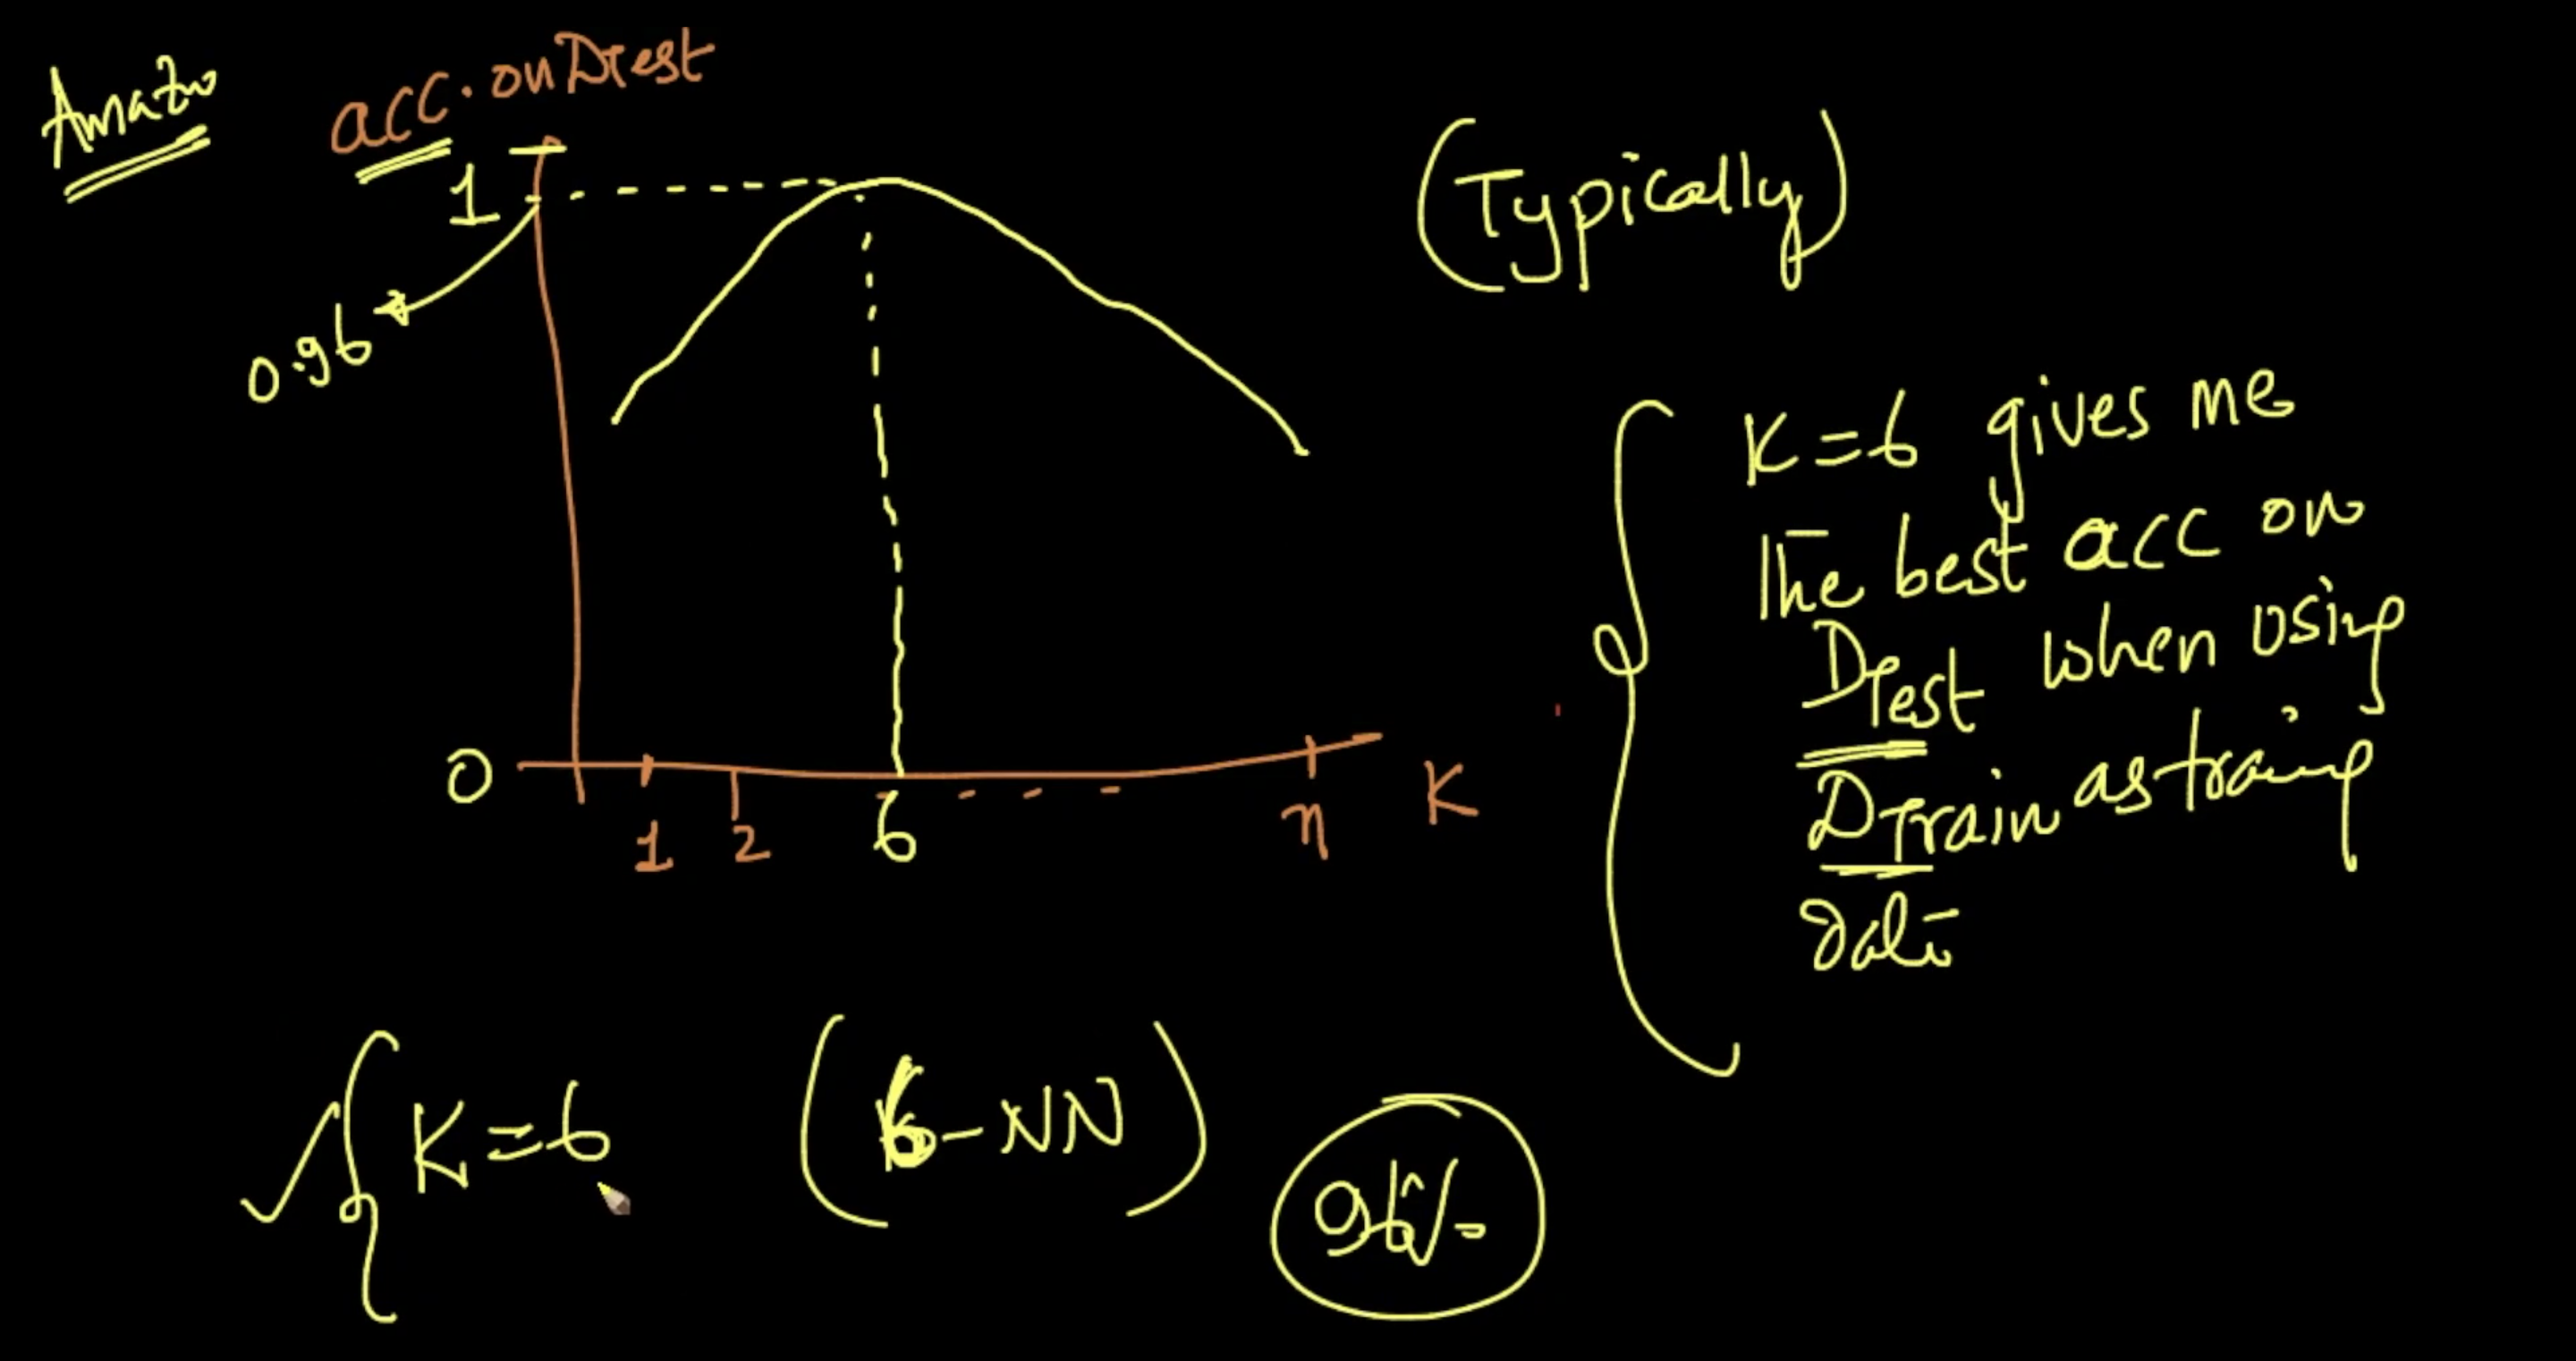 Amazn
acc. on DTest
1
0.96
0
1 2 6 n K
(Typically)
K=6 gives me
The best acc on
DTest when using
DTrain as traing
data
K=6 (6-NN) 96%